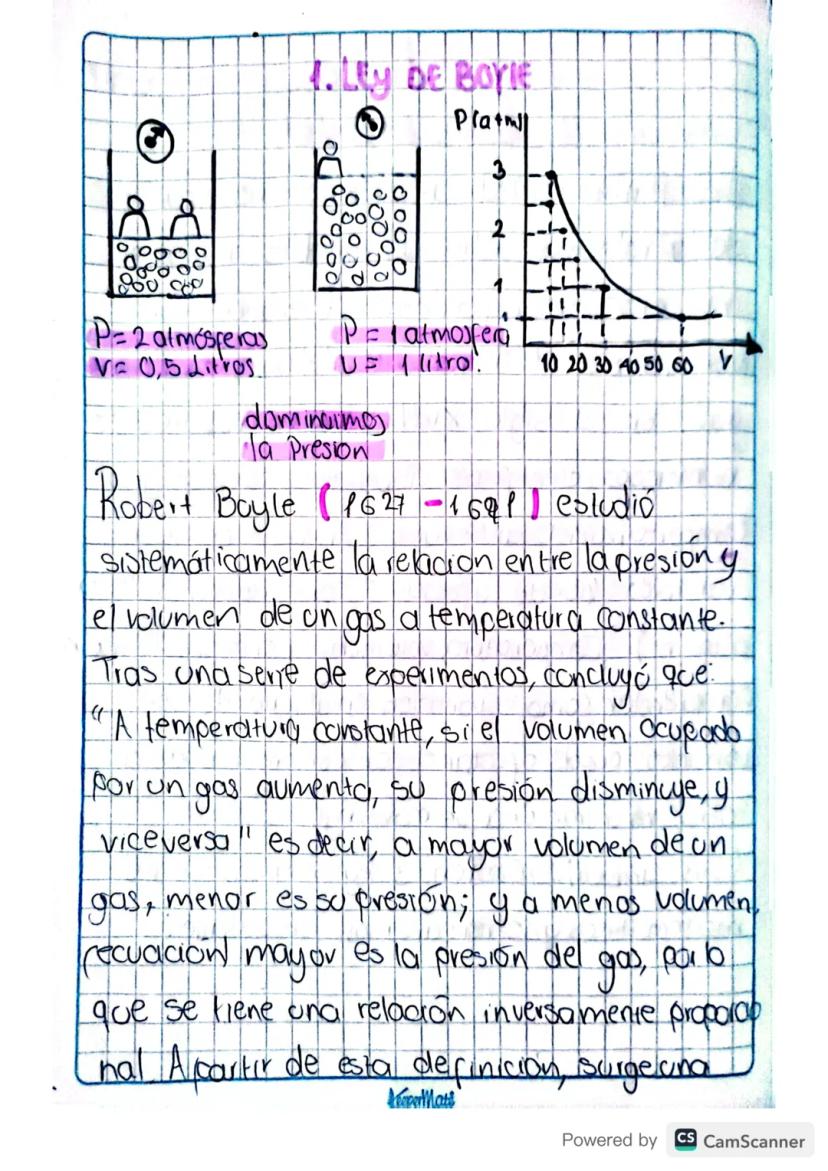 1. Ley DE BOYlE
P(atm)
3
2
1
10 20 30 40 50 60 V
P= 2 atmósferas
V= 0,5 Litros
P= 1 atmosfera
V= 1 litro.
la Presion
Robert Boyle (1627 - 1691) estudió
sistemáticamente la relacion entre la presión y
el volumen de un gas a temperatura constante.
Tras una serie de experimentos, concluyó que:
"A temperatura constante, si el volumen ocupado
por un gas aumenta, su presión disminuye, y
viceversa" es decir, a mayor volumen de un
gas, menor es su presión; y a menos volumen,
mayor es la presión del gas, por lo
que se tiene una relación inversamente proporcio
nal. A partir de esta definicion, surge una
KeeperMate
Powered by CS CamScanner